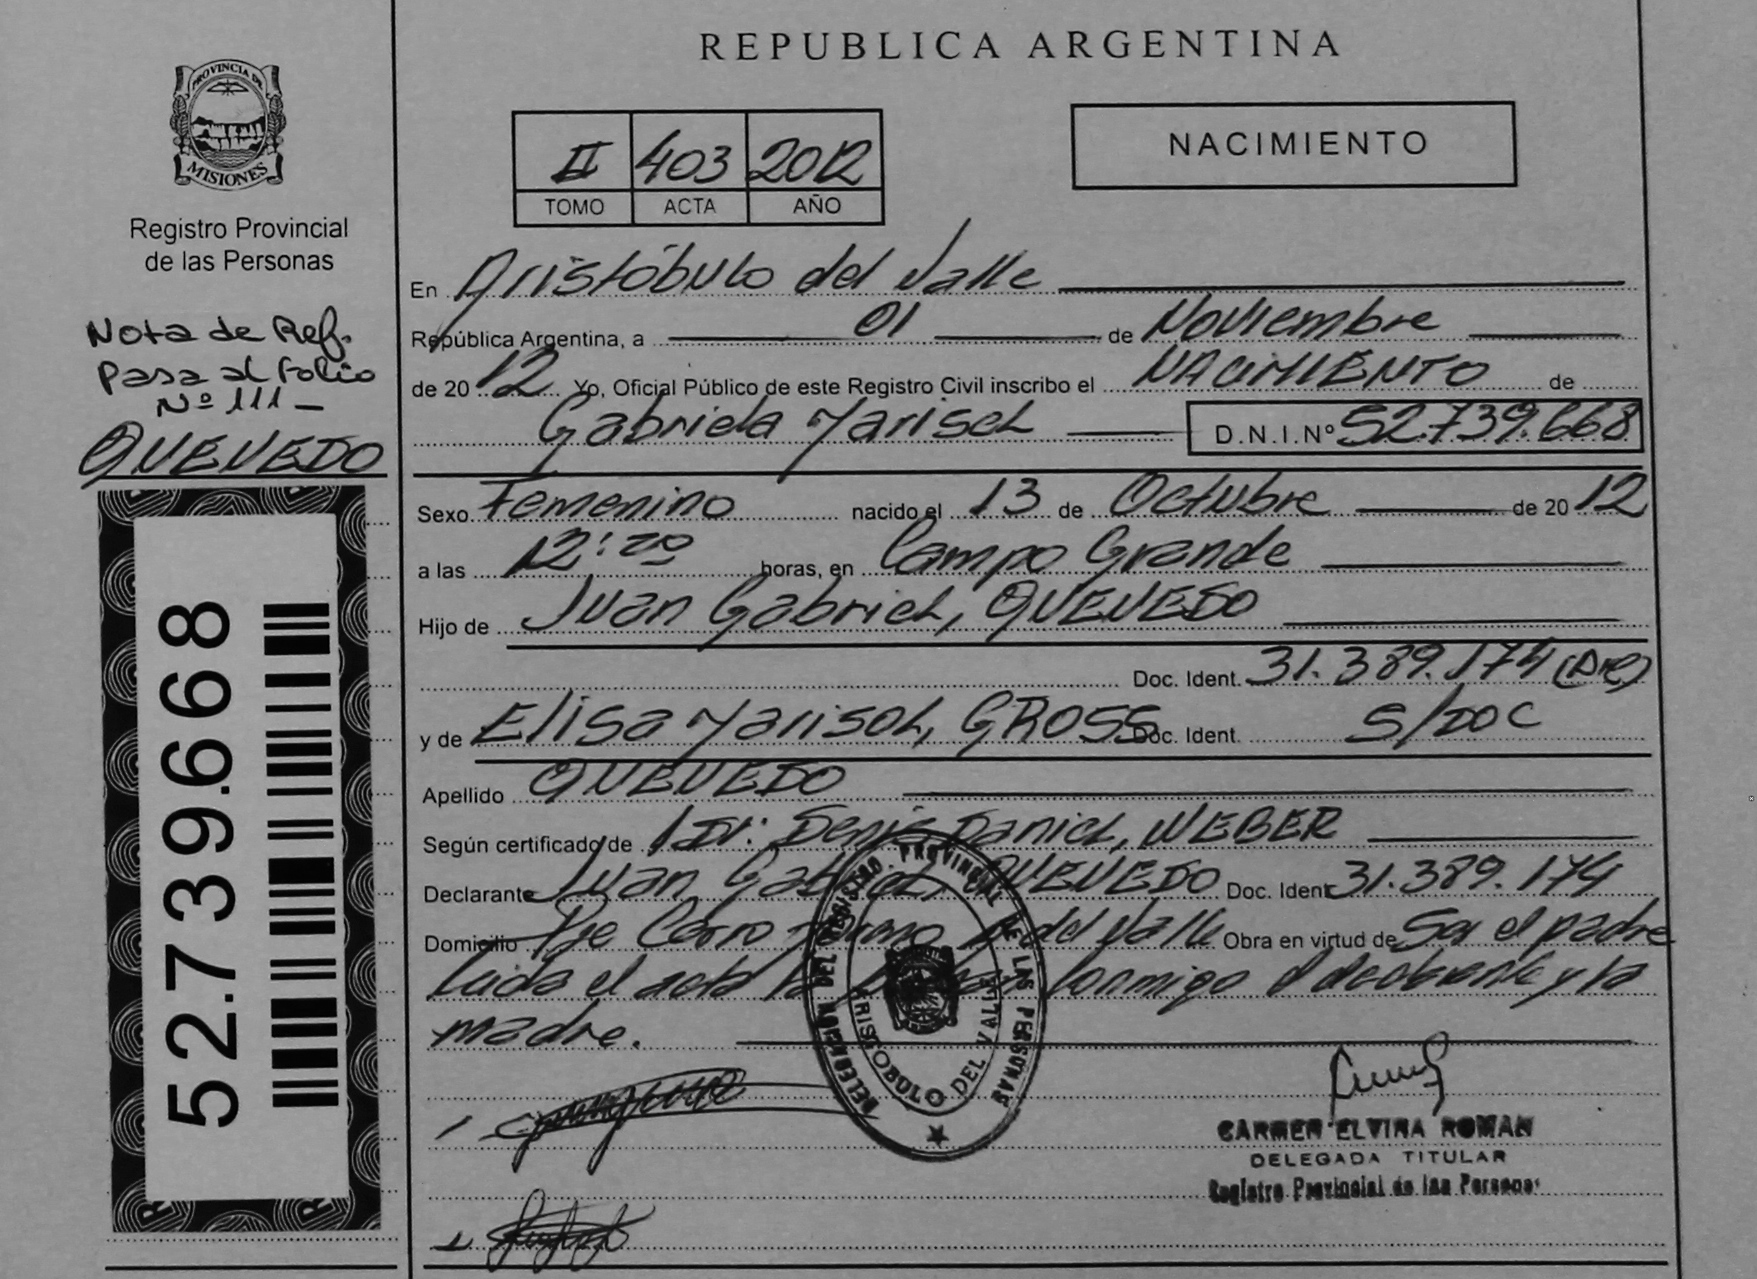 REPUBLICA ARGENTINA
PROVINCIA DE
MISIONES
Registro Provincial
de las Personas
Nota de Ref.
Pasa al Folio
Nº 111 -
QUEVEDO
52.739.668
II 403 2012
TOMO ACTA AÑO
NACIMIENTO
En Aristóbulo del Valle
República Argentina, a 01 de Noviembre
de 2012 Yo, Oficial Público de este Registro Civil inscribo el NACIMIENTO de
Gabriela Marisel D.N.I.Nº 52.739.668
Sexo Femenino nacido el 13 de Octubre de 2012
a las 12:20 horas, en Campo Grande
Hijo de Juan Gabriel, QUEVEDO
Doc. Ident. 31.389.174
y de Elisa Marisol, GROSS Doc. Ident. S/DOC
Apellido QUEVEDO
Según certificado de Dr: Denis Daniel, WEBER
Declarante Juan Gabriel, QUEVEDO Doc. Ident 31.389.174
Domicilio Cerro del Valle Obra en virtud de Ser el padre
Leida el acta conmigo el declarante y la
madre.
DELEGACION DEL REGISTRO PROVINCIAL DE LAS PERSONAS
ARISTOBULO DEL VALLE
CARMEN ELVIRA ROMAN
DELEGADA TITULAR
Registro Provincial de las Personas